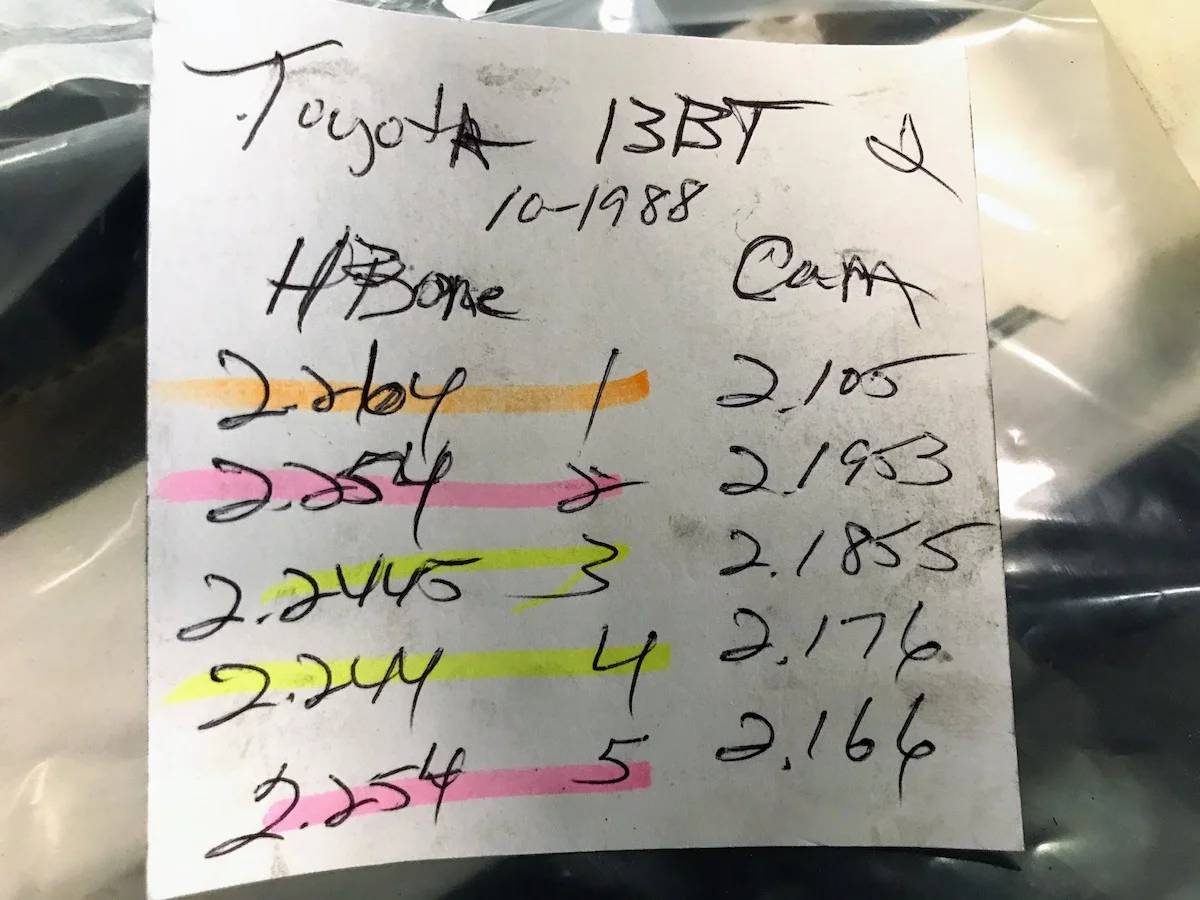 Toyota 13BT
10-1988
H Bore Cam
2.264 1 2.105
2.254 2 2.1953
2.2445 3 2.1855
2.244 4 2.176
2.254 5 2.166